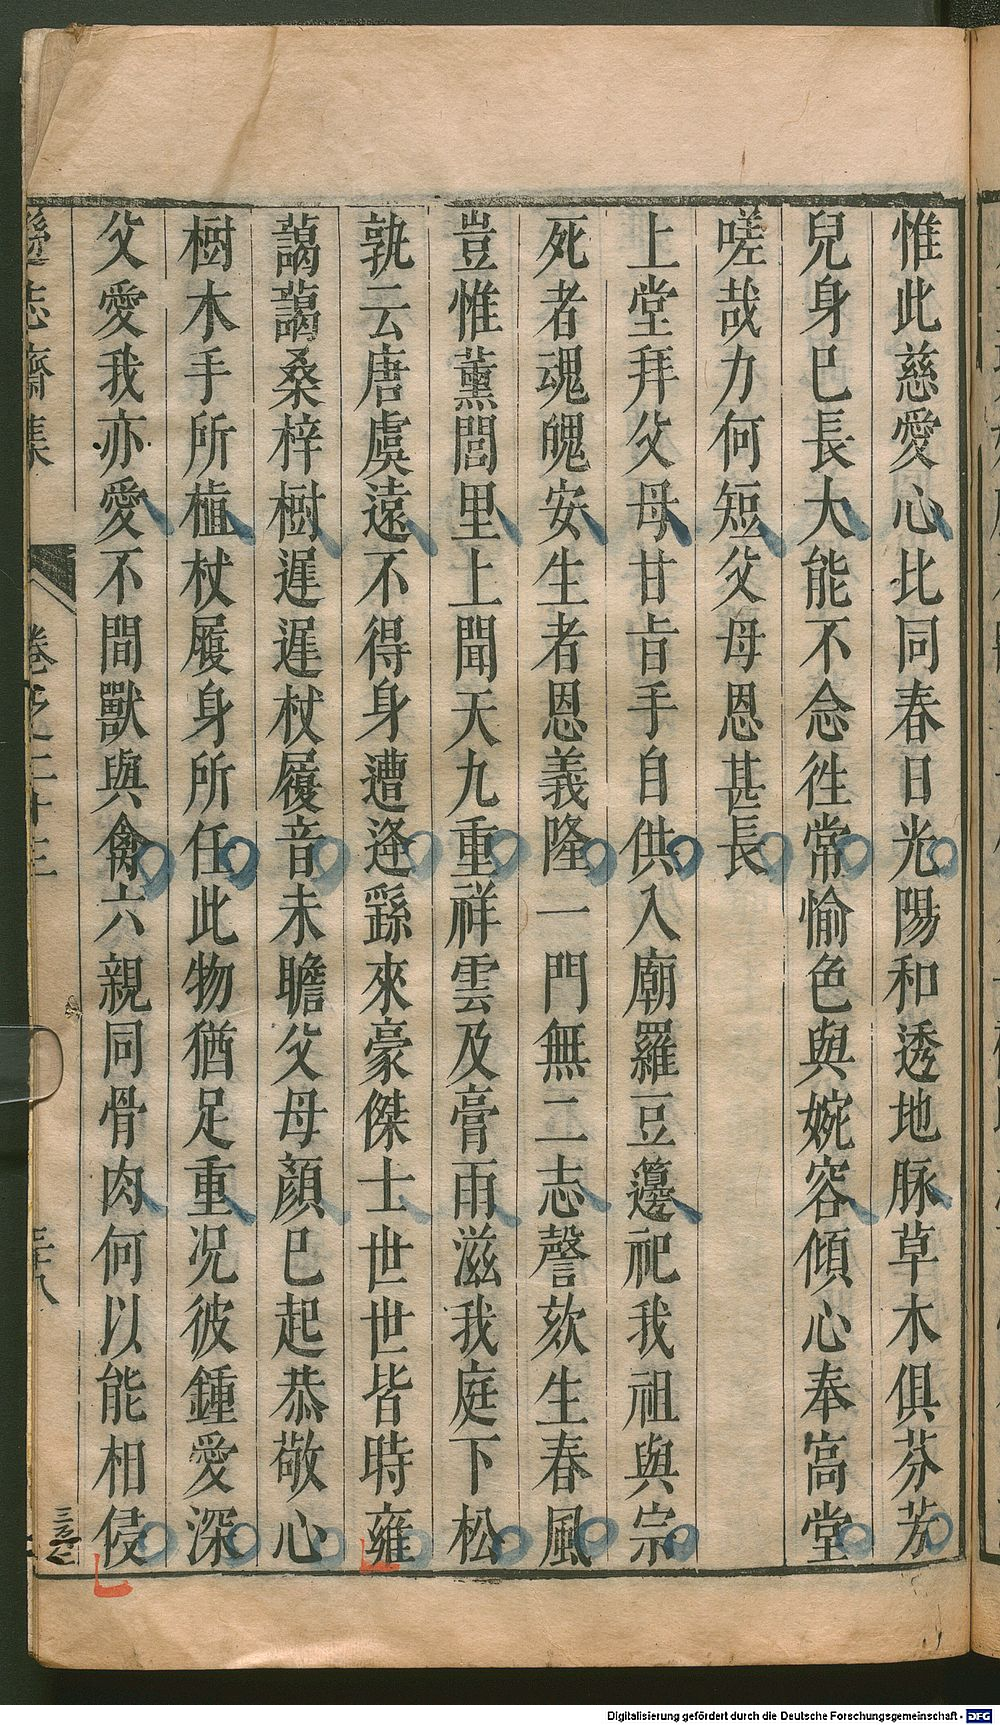 惟此慈愛心比同春日光陽和透地脉草木俱芬芳
兒身巳長大能不念徃常愉色與婉容傾心奉高堂
嗟哉力何短父母恩甚長
上堂拜父母甘旨手自供入廟羅豆籩祀我祖與宗
死者魂魄安生者恩義隆一門無二志謦欬生春風
豈惟薰閭里上聞天九重祥雲及膏雨滋我庭下松
孰云唐虞遠不得身遭逢繇來豪傑士世世皆時雍
藹藹桑梓樹遲遲杖履音未瞻父母顏巳起恭敬心
樹木手所植杖履身所任此物猶足重况彼鍾愛深
父愛我亦愛不間獸與禽六親同骨肉何以能相侵
遜志齋集
卷之二十三
三十八
Digitalisierung gefördert durch die Deutsche Forschungsgemeinschaft - DFG